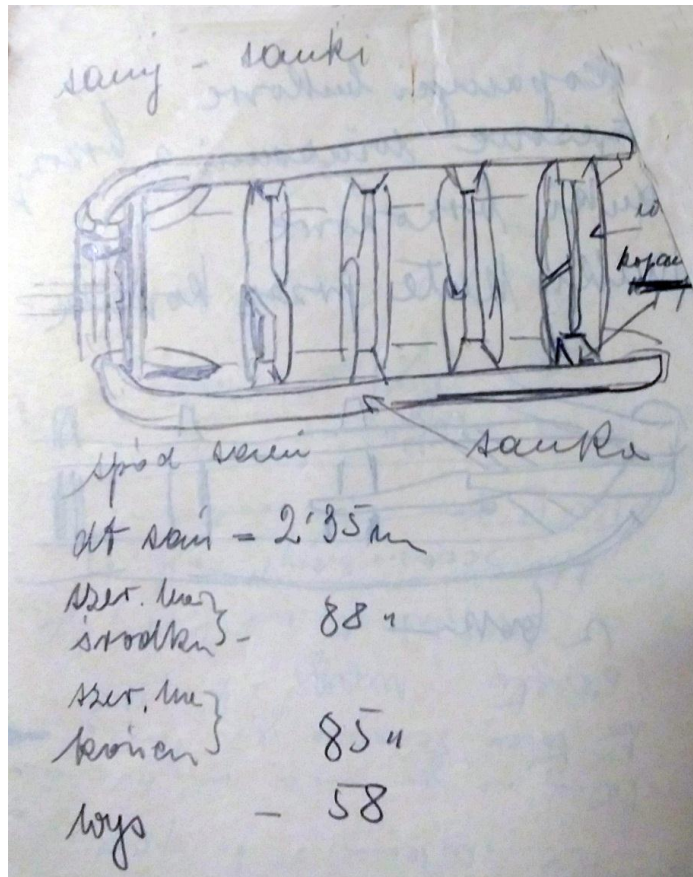 sanÿ - sanki
kopan
sanka
spód sani
dł sań = 2'35 m
szer. na
środku} - 88 "
szer. na
końcu} 85 "
wys - 58